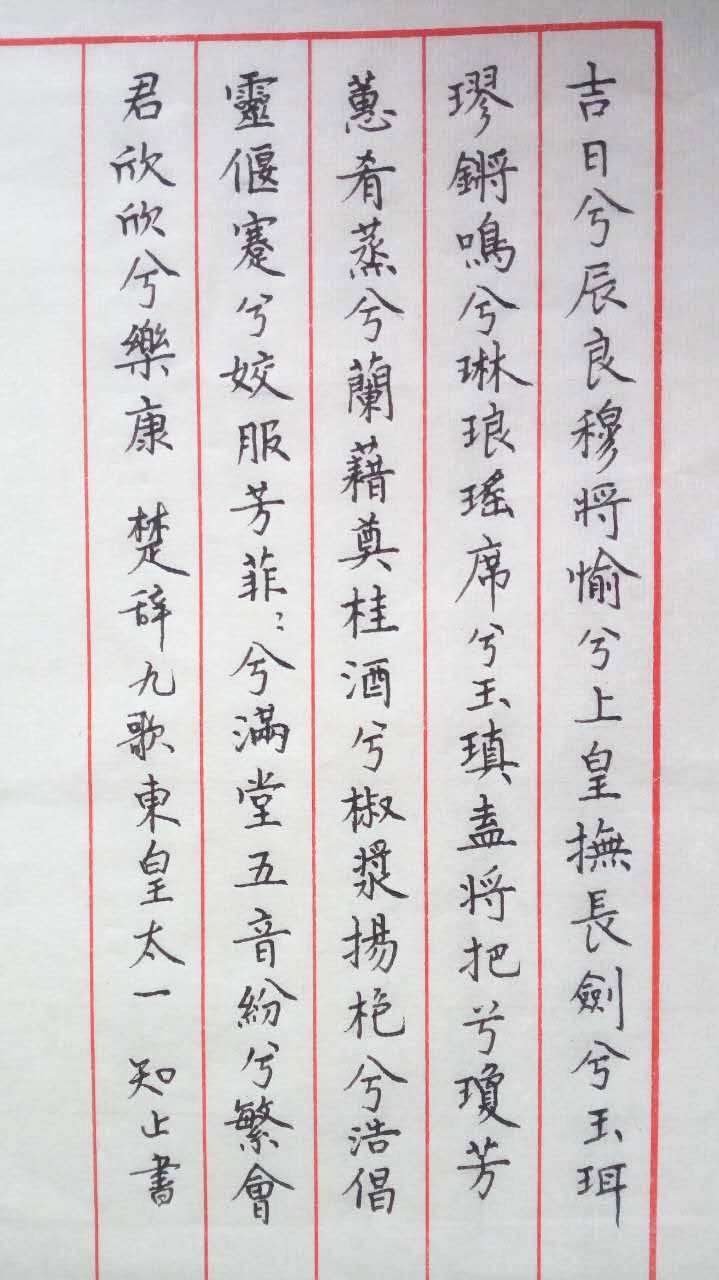 吉日兮辰良穆將愉兮上皇撫長劍兮玉珥
璆鏘鳴兮琳琅瑤席兮玉瑱盍將把兮瓊芳
蕙肴蒸兮蘭藉奠桂酒兮椒漿揚枹兮浩倡
靈偃蹇兮姣服芳菲〻兮滿堂五音紛兮繁會
君欣欣兮樂康 楚辞九歌東皇太一 知止書